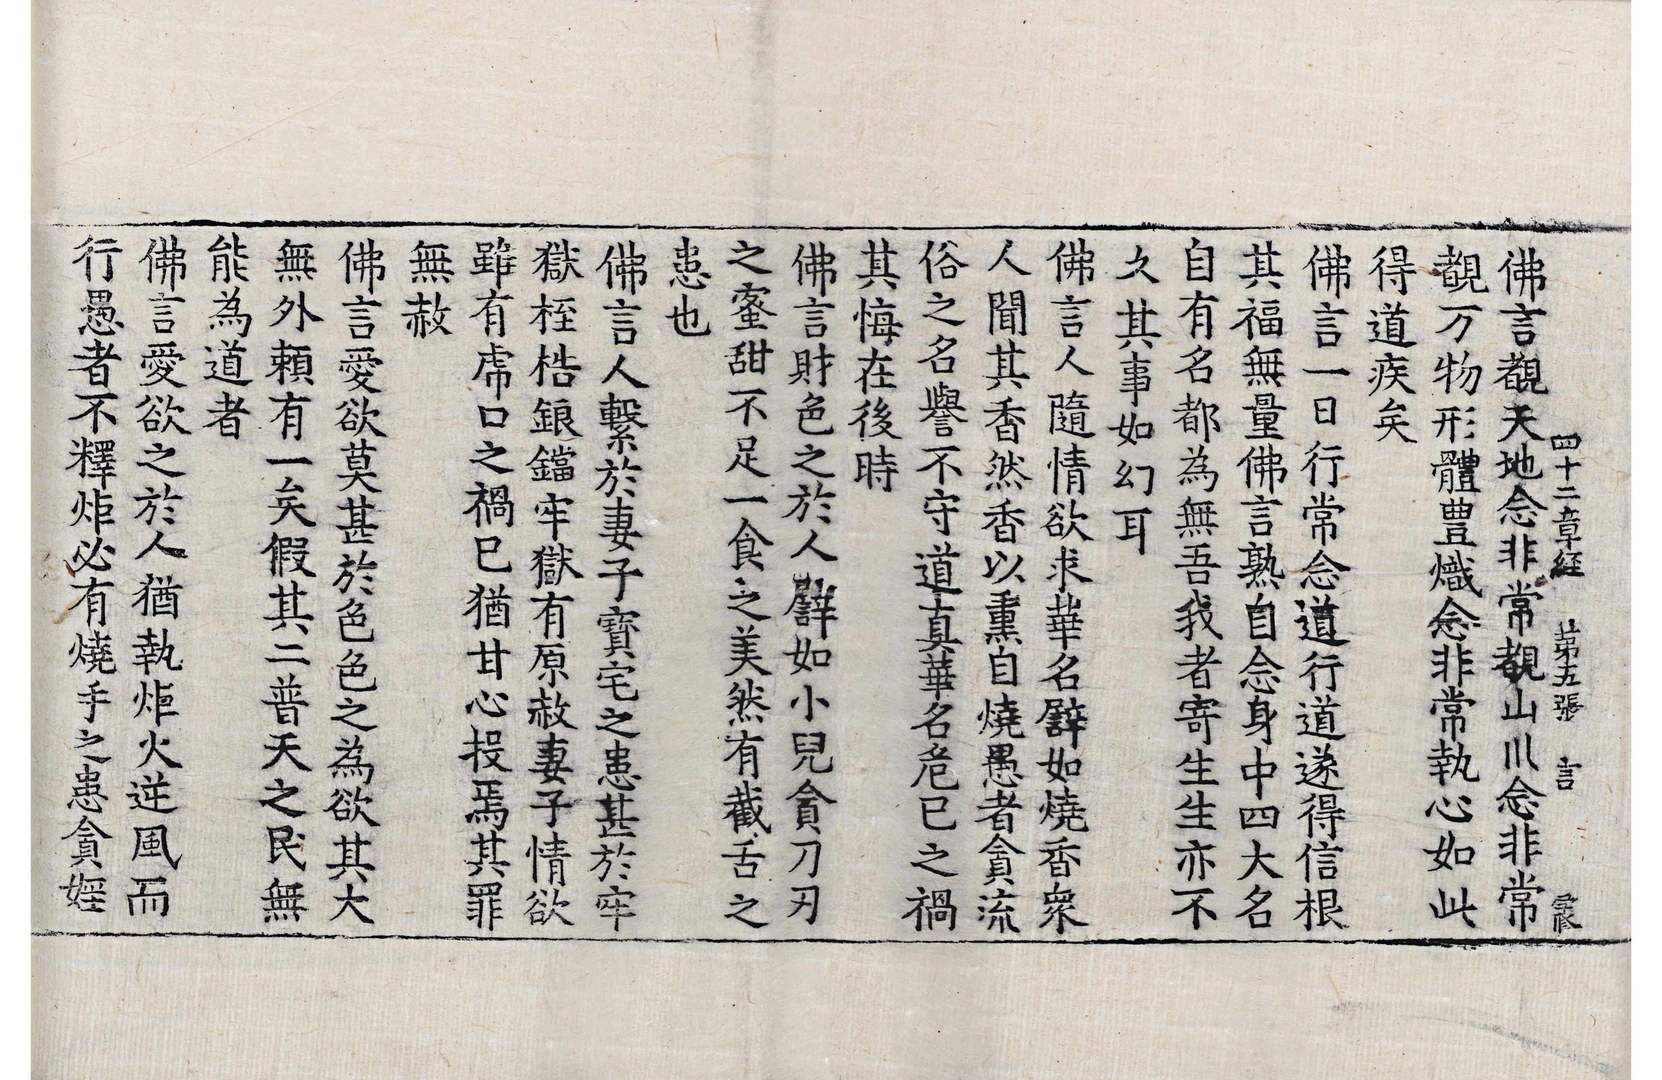 四十二章經 第五張 言
佛言觀天地念非常觀山川念非常
觀万物形體豊熾念非常執心如此
得道疾矣
佛言一日行常念道行道遂得信根
其福無量佛言熟自念身中四大名
自有名都為無吾我者寄生生亦不
久其事如幻耳
佛言人隨情欲求華名譬如燒香衆
人聞其香然香以熏自燒愚者貪流
俗之名譽不守道真華名危已之禍
其悔在後時
佛言財色之於人譬如小兒貪刀刃
之蜜甜不足一食之美然有截舌之
患也
佛言人繫於妻子寶宅之患甚於牢
獄桎梏鋃鐺牢獄有原赦妻子情欲
雖有虎口之禍已猶甘心投焉其罪
無赦
佛言愛欲莫甚於色色之為欲其大
無外頼有一矣假其二普天之民無
能為道者
佛言愛欲之於人猶執炬火逆風而
行愚者不釋炬必有燒手之患貪婬